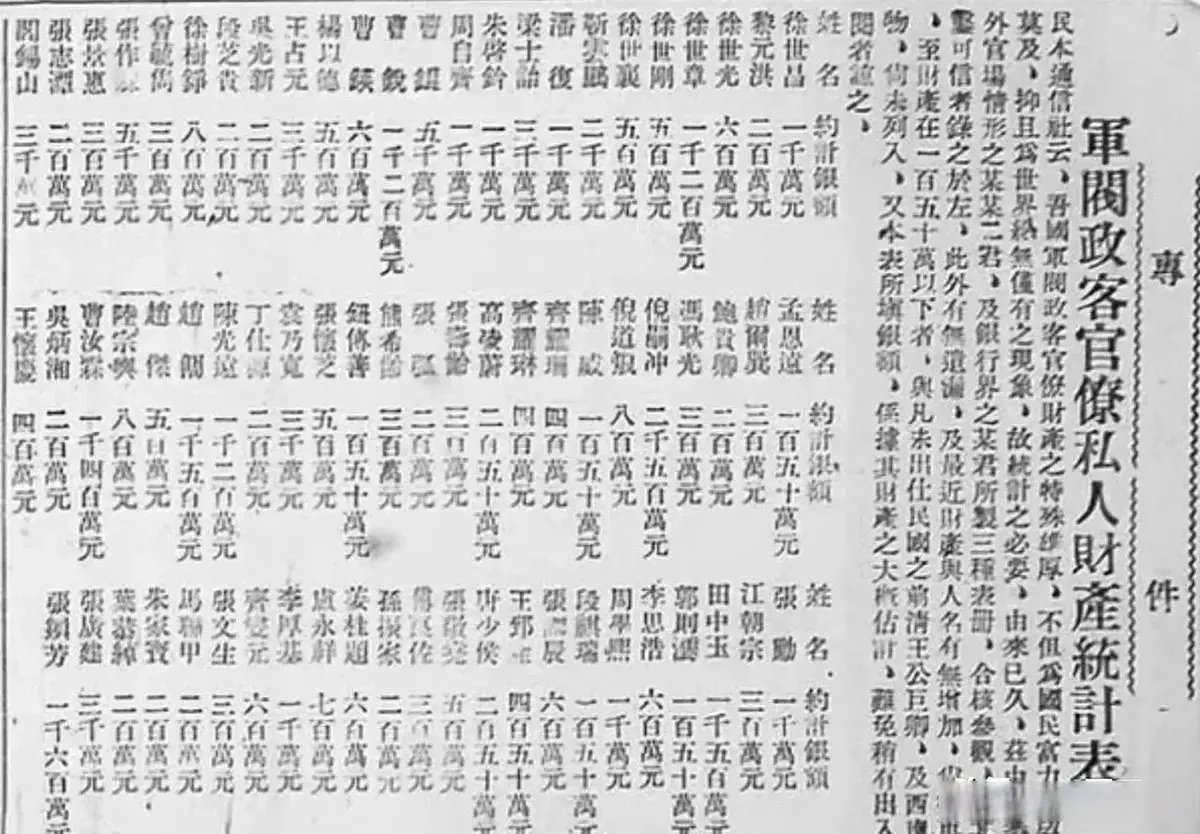 專件
軍閥政客官僚私人財產統計表
民本通信社云、吾國軍閥政客官僚財產之特殊雄厚、不但為國民富力所
莫及、抑且為世界絕無僅有之現象、故統計之必要、由來已久、茲由
外官場情形之某某二君、及銀行界之某君所製三種表冊、合核參觀、
鑿可信者錄之於左、此外有無遺漏、及最近財產與人名有無增加、尚
、至財產在一百五十萬以下者、與凡未出仕民國之前清王公巨卿、及西南
物、尚未列入、又本表所填銀額、係據其財產之大概估計、難免稍有出入
閱者諒之、
姓名 約計銀額
徐世昌 一千萬元
黎元洪 二百萬元
徐世光 六百萬元
徐世章 一千二百萬元
徐世剛 五百萬元
徐世襄 五百萬元
靳雲鵬 二千萬元
潘復 一千萬元
梁士詒 三千萬元
朱啓鈐 一千萬元
周自齊 一千萬元
曹錕 五千萬元
曹銳 一千二百萬元
曹鍈 六百萬元
楊以德 五百萬元
王占元 三千萬元
吳光新 二百萬元
段芝貴 二百萬元
徐樹錚 八百萬元
曾毓雋 三百萬元
張作霖 五千萬元
張景惠 三百萬元
張志潭 二百萬元
閻錫山 三千萬元
姓名 約計銀額
孟恩遠 一百五十萬元
趙爾巽 三百萬元
鮑貴卿 二百萬元
馮耿光 三百萬元
倪嗣冲 二千五百萬元
倪道烺 八百萬元
陳威 一百五十萬元
齊耀珊 四百萬元
齊耀琳 四百萬元
高凌蔚 二百五十萬元
張壽齡 三百萬元
張弧 二百萬元
熊希齡 三百萬元
鈕傳善 一百五十萬元
張懷芝 五百萬元
袁乃寬 三千萬元
丁仕源 二百萬元
陳光遠 一千二百萬元
趙倜 一千五百萬元
趙傑 五百萬元
陸宗輿 八百萬元
曹汝霖 一千四百萬元
吳炳湘 二百萬元
王懷慶 四百萬元
姓名 約計銀額
張勳 一千萬元
江朝宗 三百萬元
田中玉 一千五百萬元
郭則澐 一百五十萬元
李思浩 六百萬元
周學熙 一千萬元
段祺瑞 一百五十萬元
張調辰 六百萬元
王郅隆 四百五十萬元
唐少侯 二百五十萬元
張敬堯 五百萬元
傅良佐 三百萬元
孫振家 二百萬元
姜桂題 六百萬元
盧永祥 七百萬元
李厚基 一千萬元
齊燮元 六百萬元
張文生 三百萬元
馬聯甲 二百萬元
朱家寶 二百萬元
葉恭綽 二百萬元
張廣建 三千萬元
張鎮芳 一千六百萬元